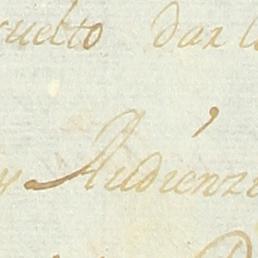 ruelto dar l
y Audienzi